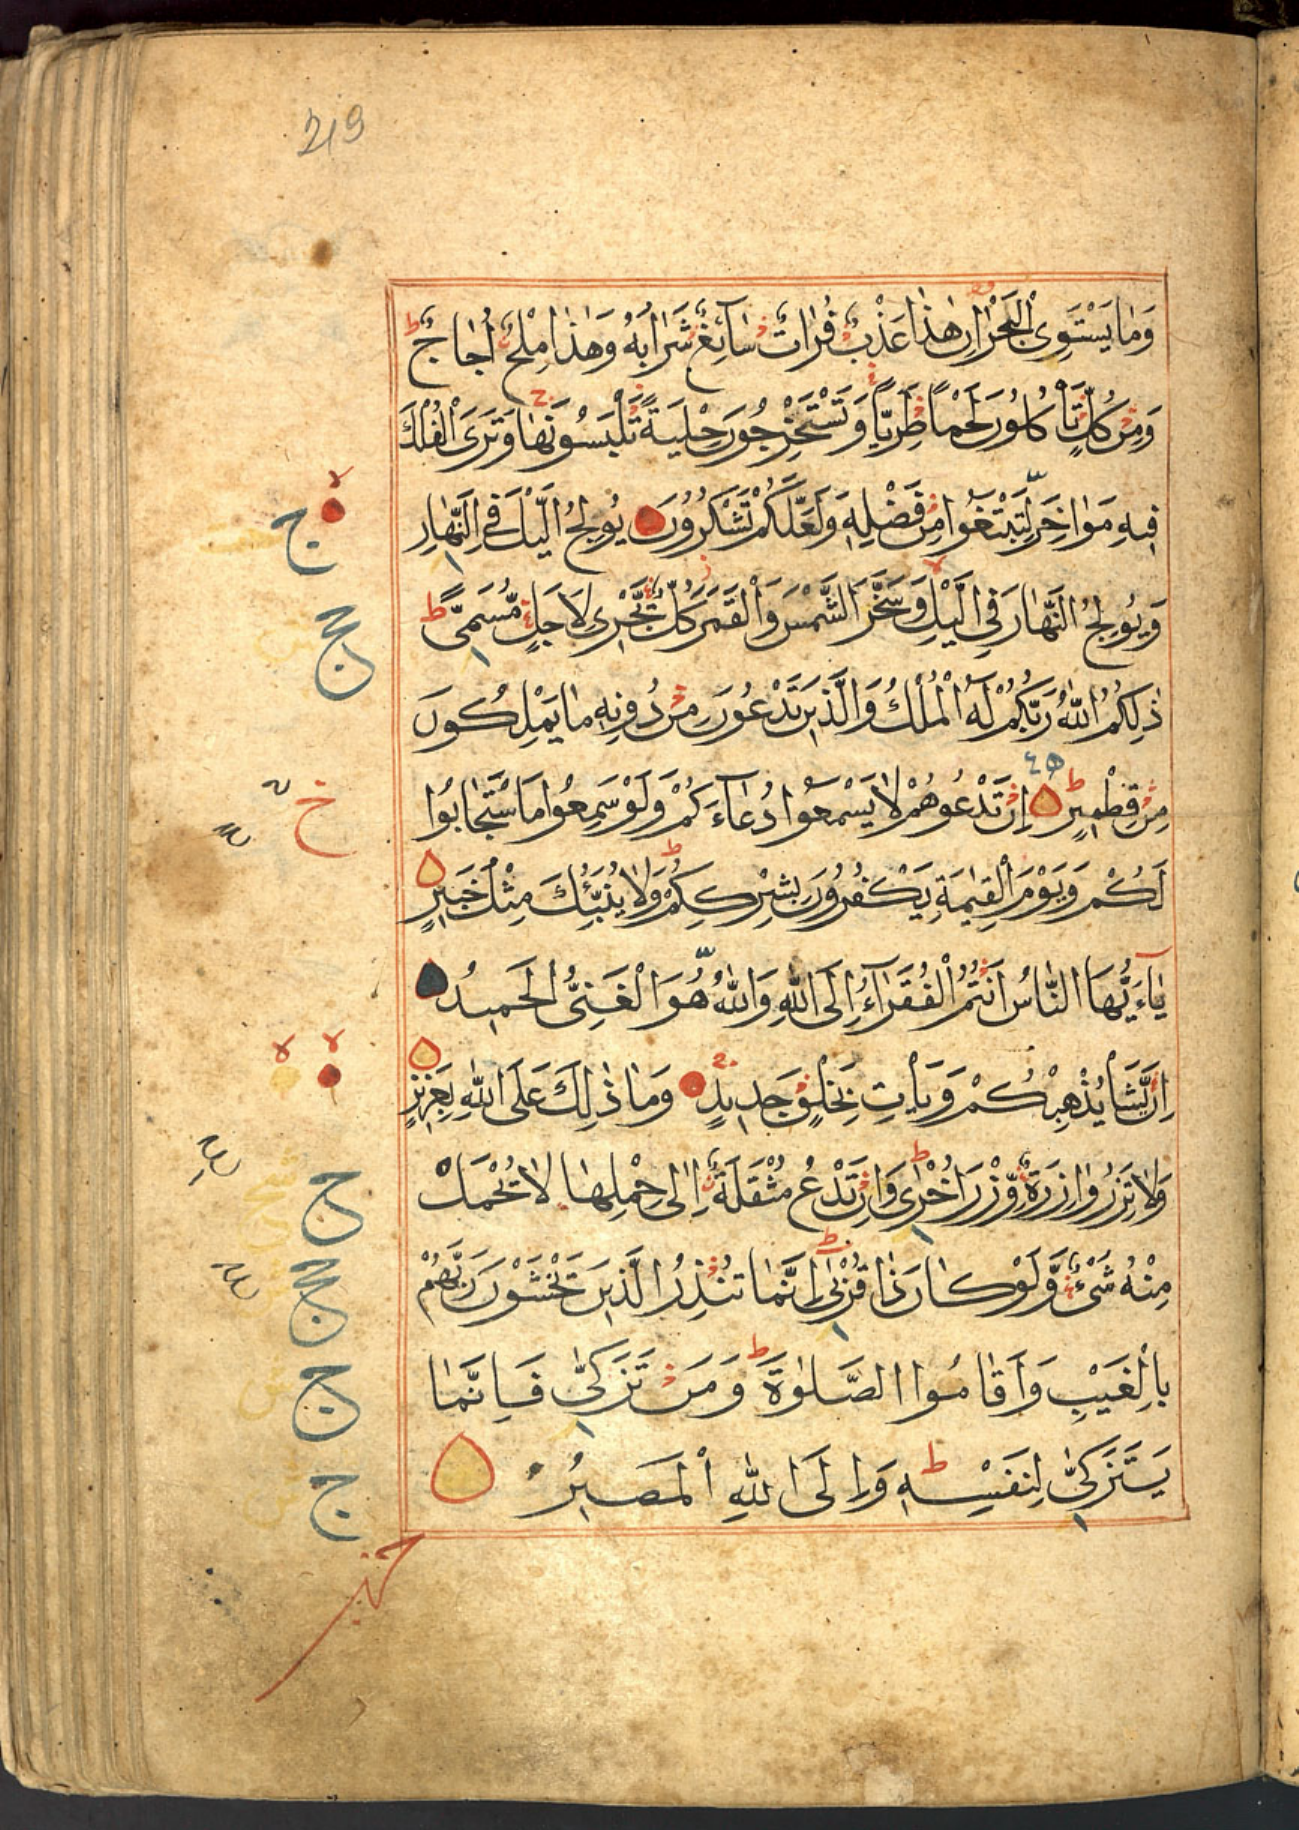 219
وَمَا يَسْتَوِى الْبَحْرَانِ هٰذَا عَذْبٌ فُرَاتٌ سَآئِغٌ شَرَابُهُ وَهٰذَا مِلْحٌ اُجَاجٌ ط
وَمِنْ كُلٍّ تَأْكُلُونَ لَحْمًا طَرِيًّا وَتَسْتَخْرِجُونَ حِلْيَةً تَلْبَسُونَهَا وَتَرَى الْفُلْكَ
فِيهِ مَوَاخِرَ لِتَبْتَغُوا مِنْ فَضْلِهِ وَلَعَلَّكُمْ تَشْكُرُونَ يُولِجُ الَّيْلَ فِى النَّهَارِ
وَيُولِجُ النَّهَارَ فِى الَّيْلِ وَسَخَّرَ الشَّمْسَ وَالْقَمَرَ كُلٌّ يَّجْرِى لِاَجَلٍ مُّسَمًّى ط
ذٰلِكُمُ اللّٰهُ رَبُّكُمْ لَهُ الْمُلْكُ وَالَّذِينَ تَدْعُونَ مِنْ دُونِهِ مَا يَمْلِكُونَ
مِنْ قِطْمِيرٍ ط اِنْ تَدْعُوهُمْ لَا يَسْمَعُوا دُعَآءَكُمْ وَلَوْ سَمِعُوا مَا اسْتَجَابُوا
لَكُمْ وَيَوْمَ الْقِيٰمَةِ يَكْفُرُونَ بِشِرْكِكُمْ ط وَلَا يُنَبِّئُكَ مِثْلُ خَبِيرٍ
يٰٓاَيُّهَا النَّاسُ اَنْتُمُ الْفُقَرَآءُ اِلَى اللّٰهِ وَاللّٰهُ هُوَ الْغَنِىُّ الْحَمِيدُ
اِنْ يَّشَأْ يُذْهِبْكُمْ وَيَأْتِ بِخَلْقٍ جَدِيدٍ وَمَا ذٰلِكَ عَلَى اللّٰهِ بِعَزِيزٍ
وَلَا تَزِرُ وَازِرَةٌ وِّزْرَ اُخْرٰى ط وَاِنْ تَدْعُ مُثْقَلَةٌ اِلٰى حِمْلِهَا لَا يُحْمَلْ
مِنْهُ شَىْءٌ وَّلَوْ كَانَ ذَا قُرْبٰى ط اِنَّمَا تُنْذِرُ الَّذِينَ يَخْشَوْنَ رَبَّهُمْ
بِالْغَيْبِ وَاَقَامُوا الصَّلٰوةَ ط وَمَنْ تَزَكّٰى فَاِنَّمَا
يَتَزَكّٰى لِنَفْسِهِ ط وَاِلَى اللّٰهِ الْمَصِيرُ